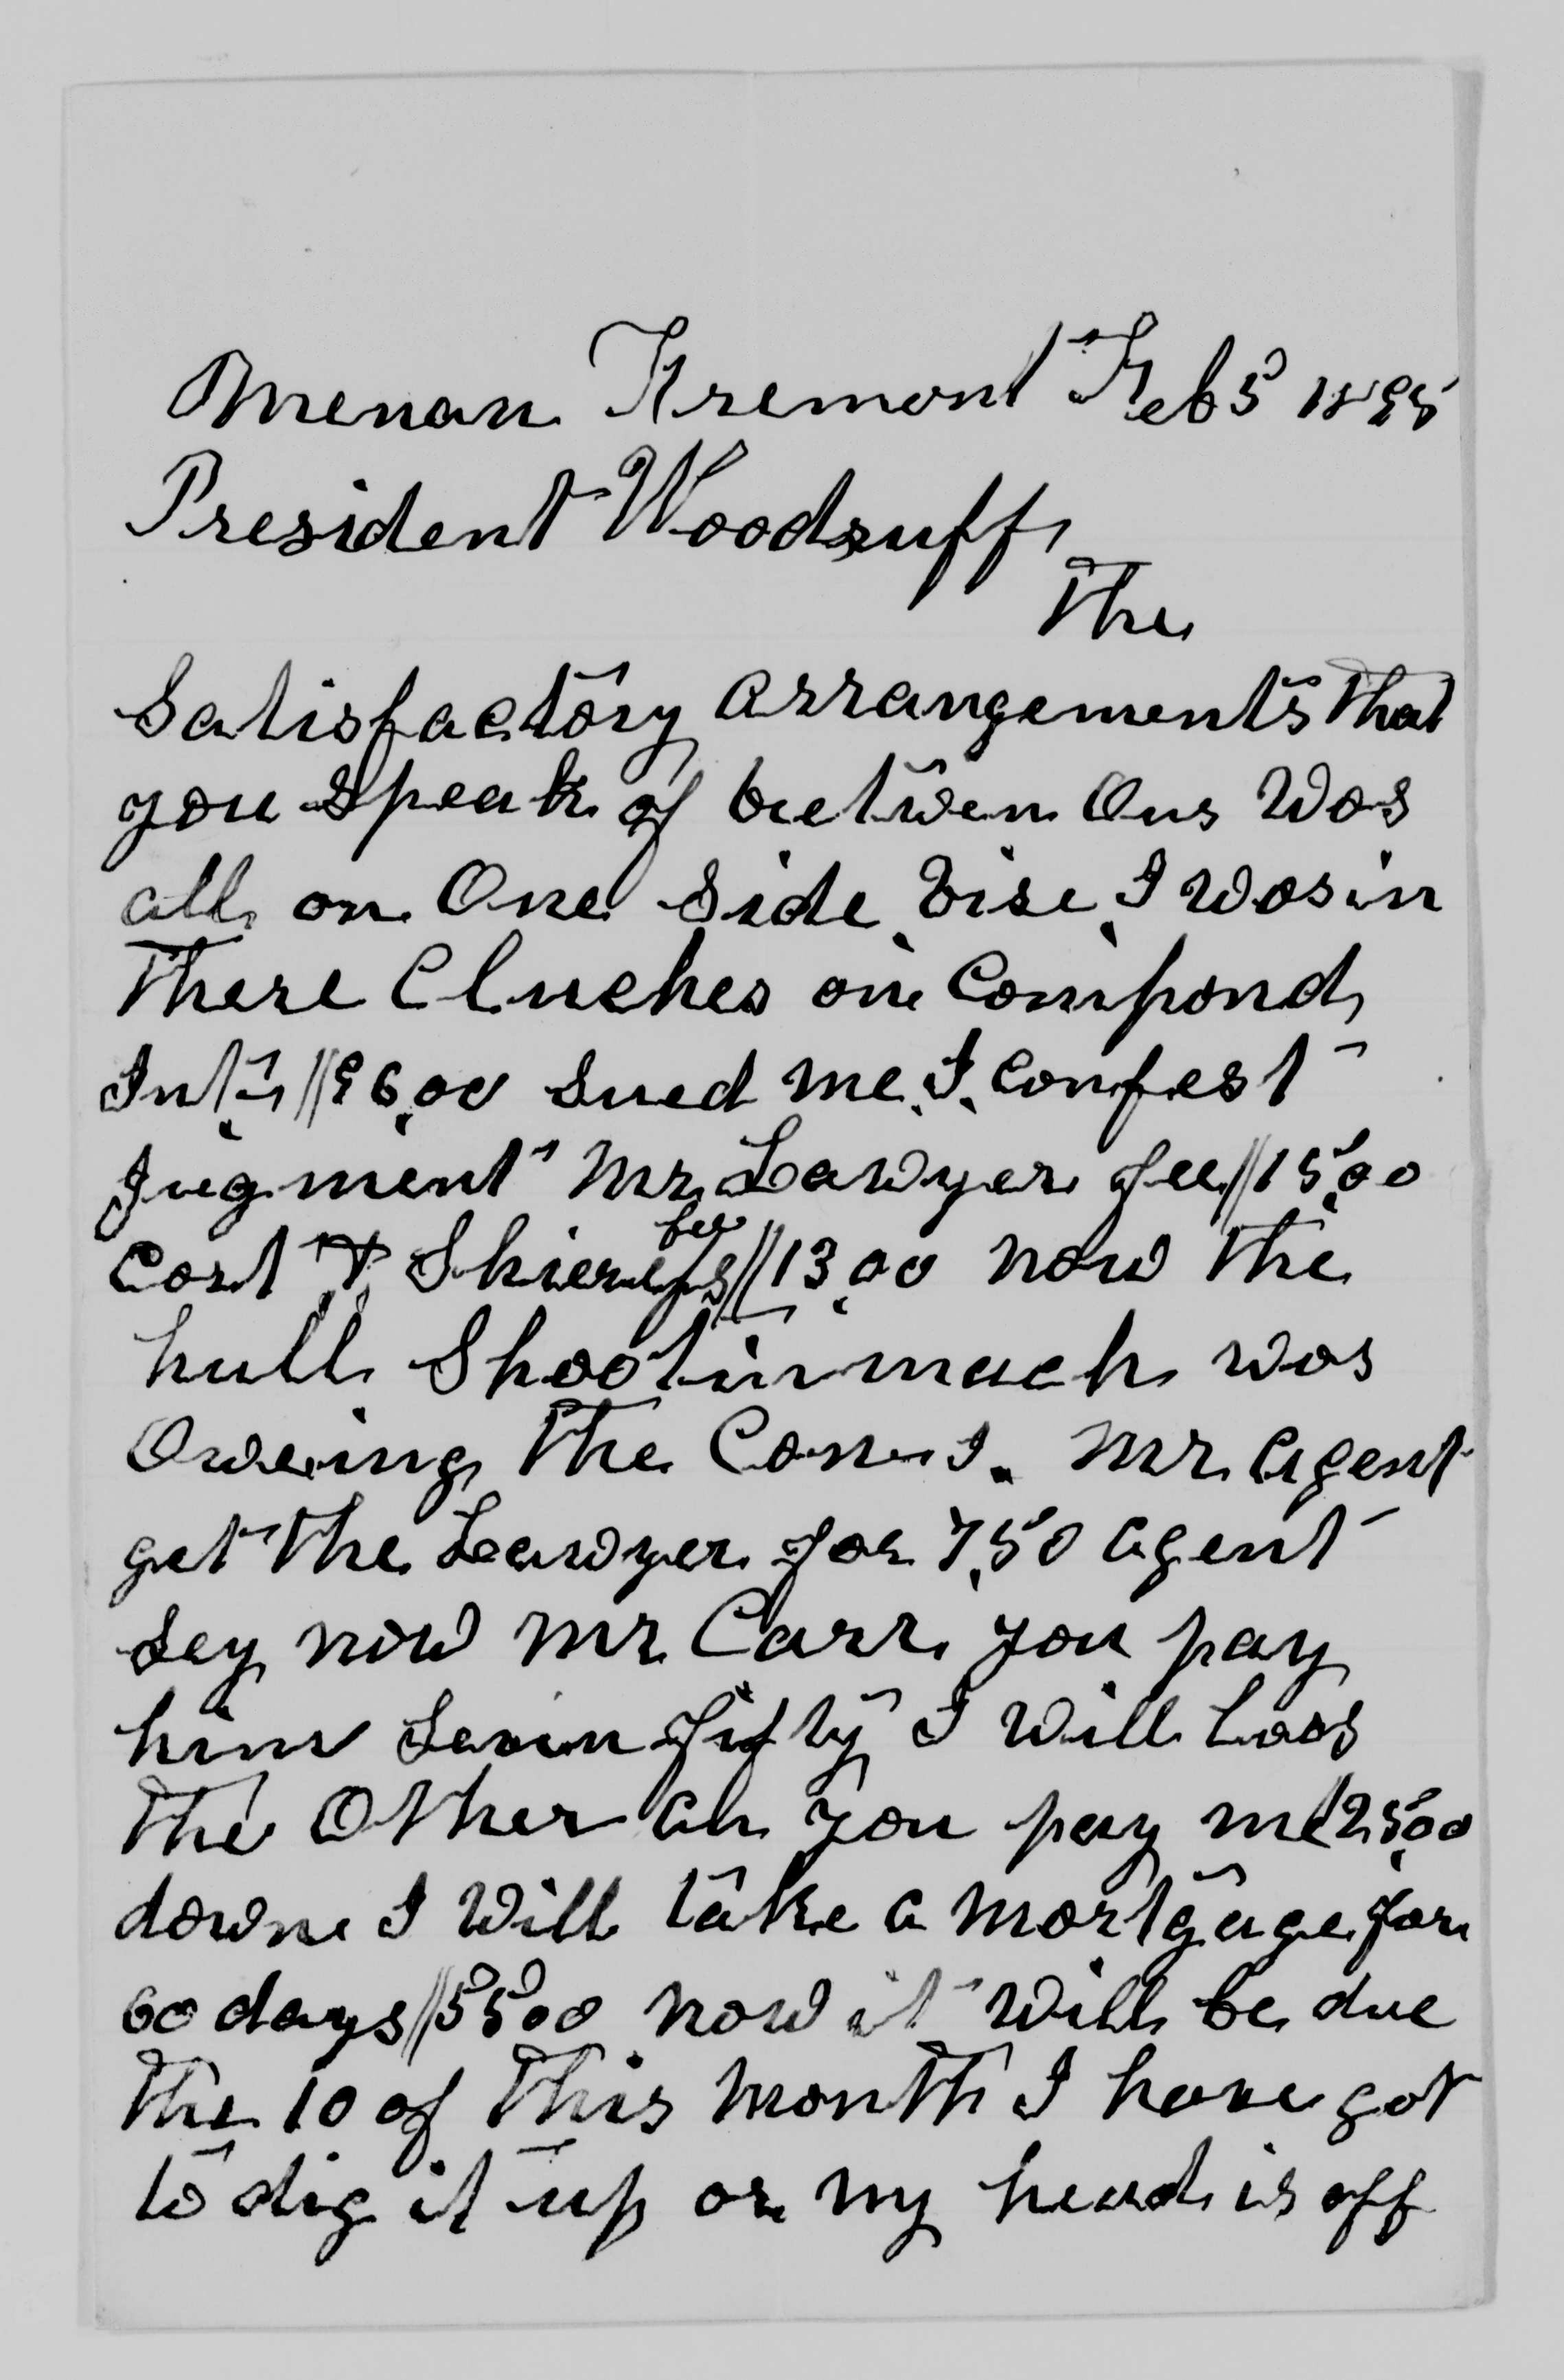 Menan Fremont Feb 5 1895
President Woodruff,
The
Satisfactory arrangements that
you Speak of betwen Ous Was
all on One Side
There Cluches on Compond
Int 96,00 Sued me, I, Confest
Jugment Mr Lawyer fee 15,00
Cort & Shierefs fee 13,00 now the
hull Shootinmach was
Oweing the Co Mr Agent
get the Lawyer for 7,50 Agent
Sey now Mr Carr you pay
him Sevin fifty I Will Loos
the Other An you pay me 25,00
down I Will take a Mortgage for
60 days 55,00 now it Will be due
the 10 of this Month I have got
to dig it up or my head is off